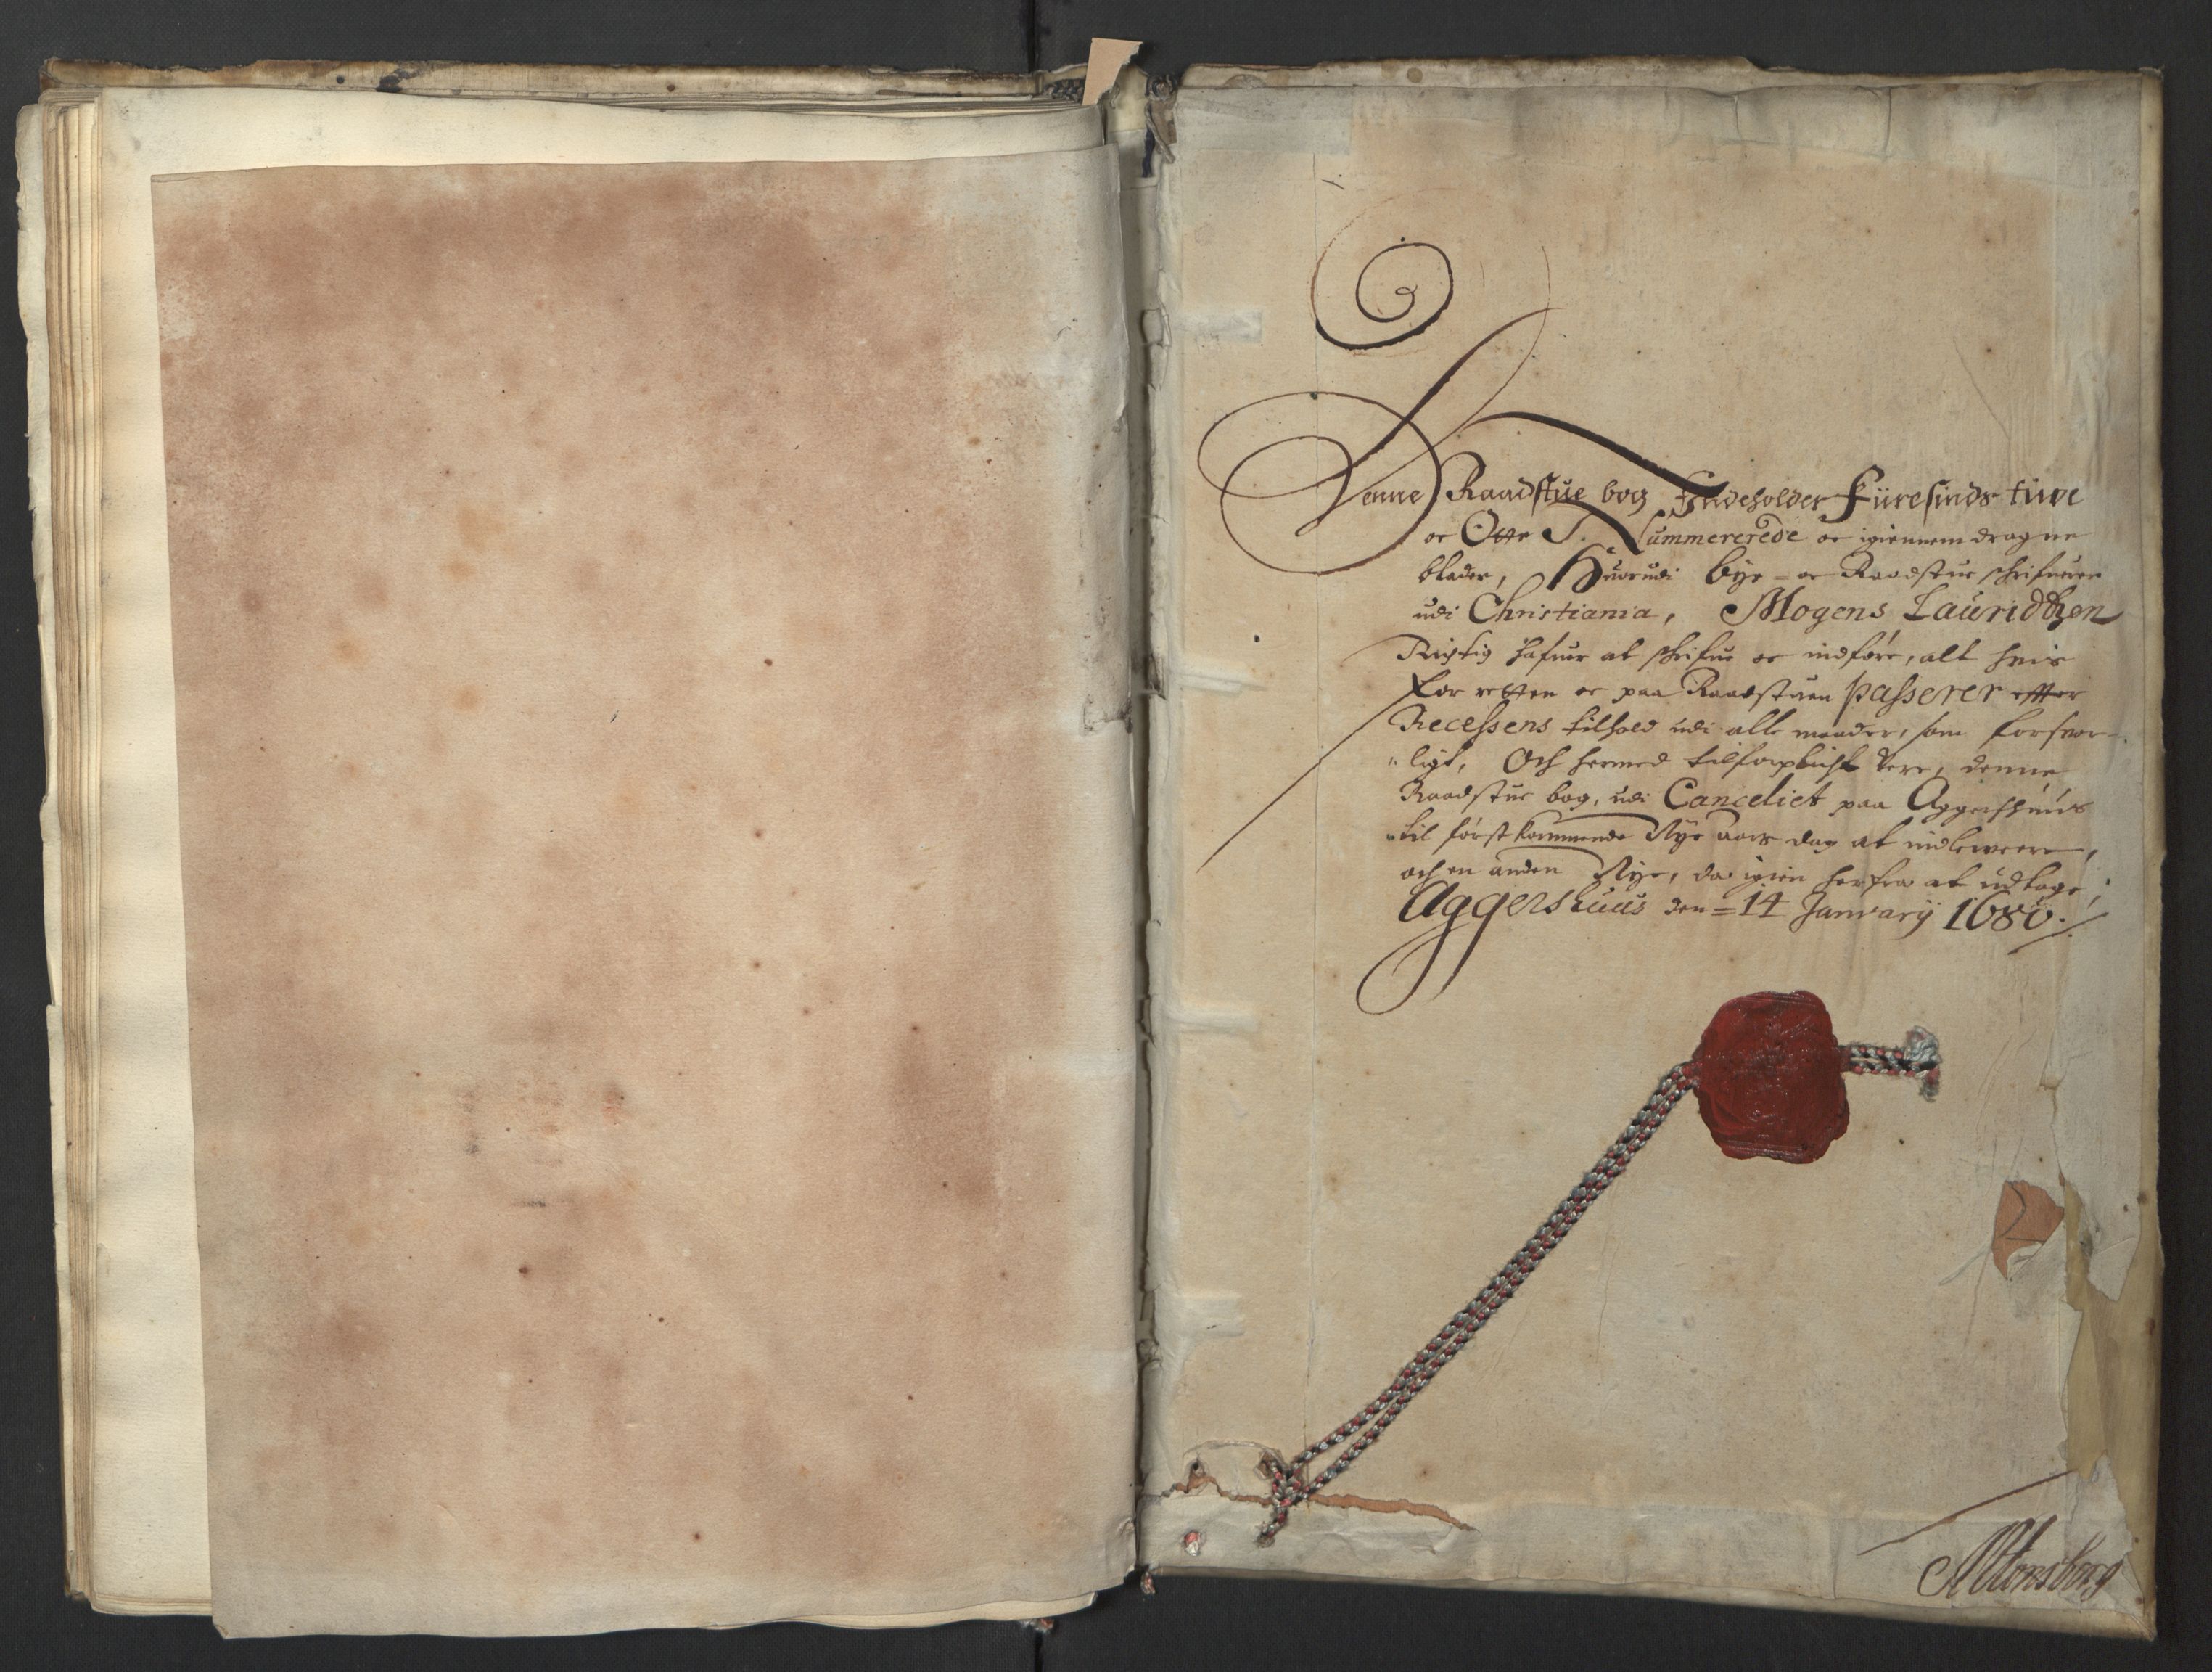 Denne Raadstue bog Indeholder Fiiresinds tiuve
oc Otte Nummererede oc igiennem dragne
blader, Huorudi bye- oc Raadstue schrifueren
udi Christiania, Mogens Lauridtzen
Richtig hafuer at schrifue oc indføre, alt hvis
for retten oc paa Raadstuen passerer effter
Recessens tilhold udi alle maader, som forsvar-
ligt, Och hermed tilforplicht vere, denne
Raadstue bog, udi Canceliet paa Aggershuus
til først kommende Nye aars dag at indlewere,
och en anden Nye, da igien herfra at udtage;
Aggershuus den 14 January 1680.